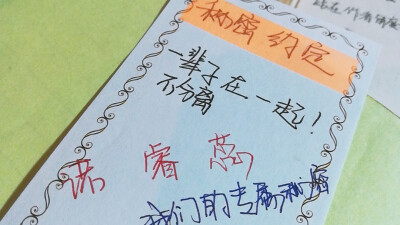 秘密约定
一辈子在一起!
不分离
睿
我们的专属秘密